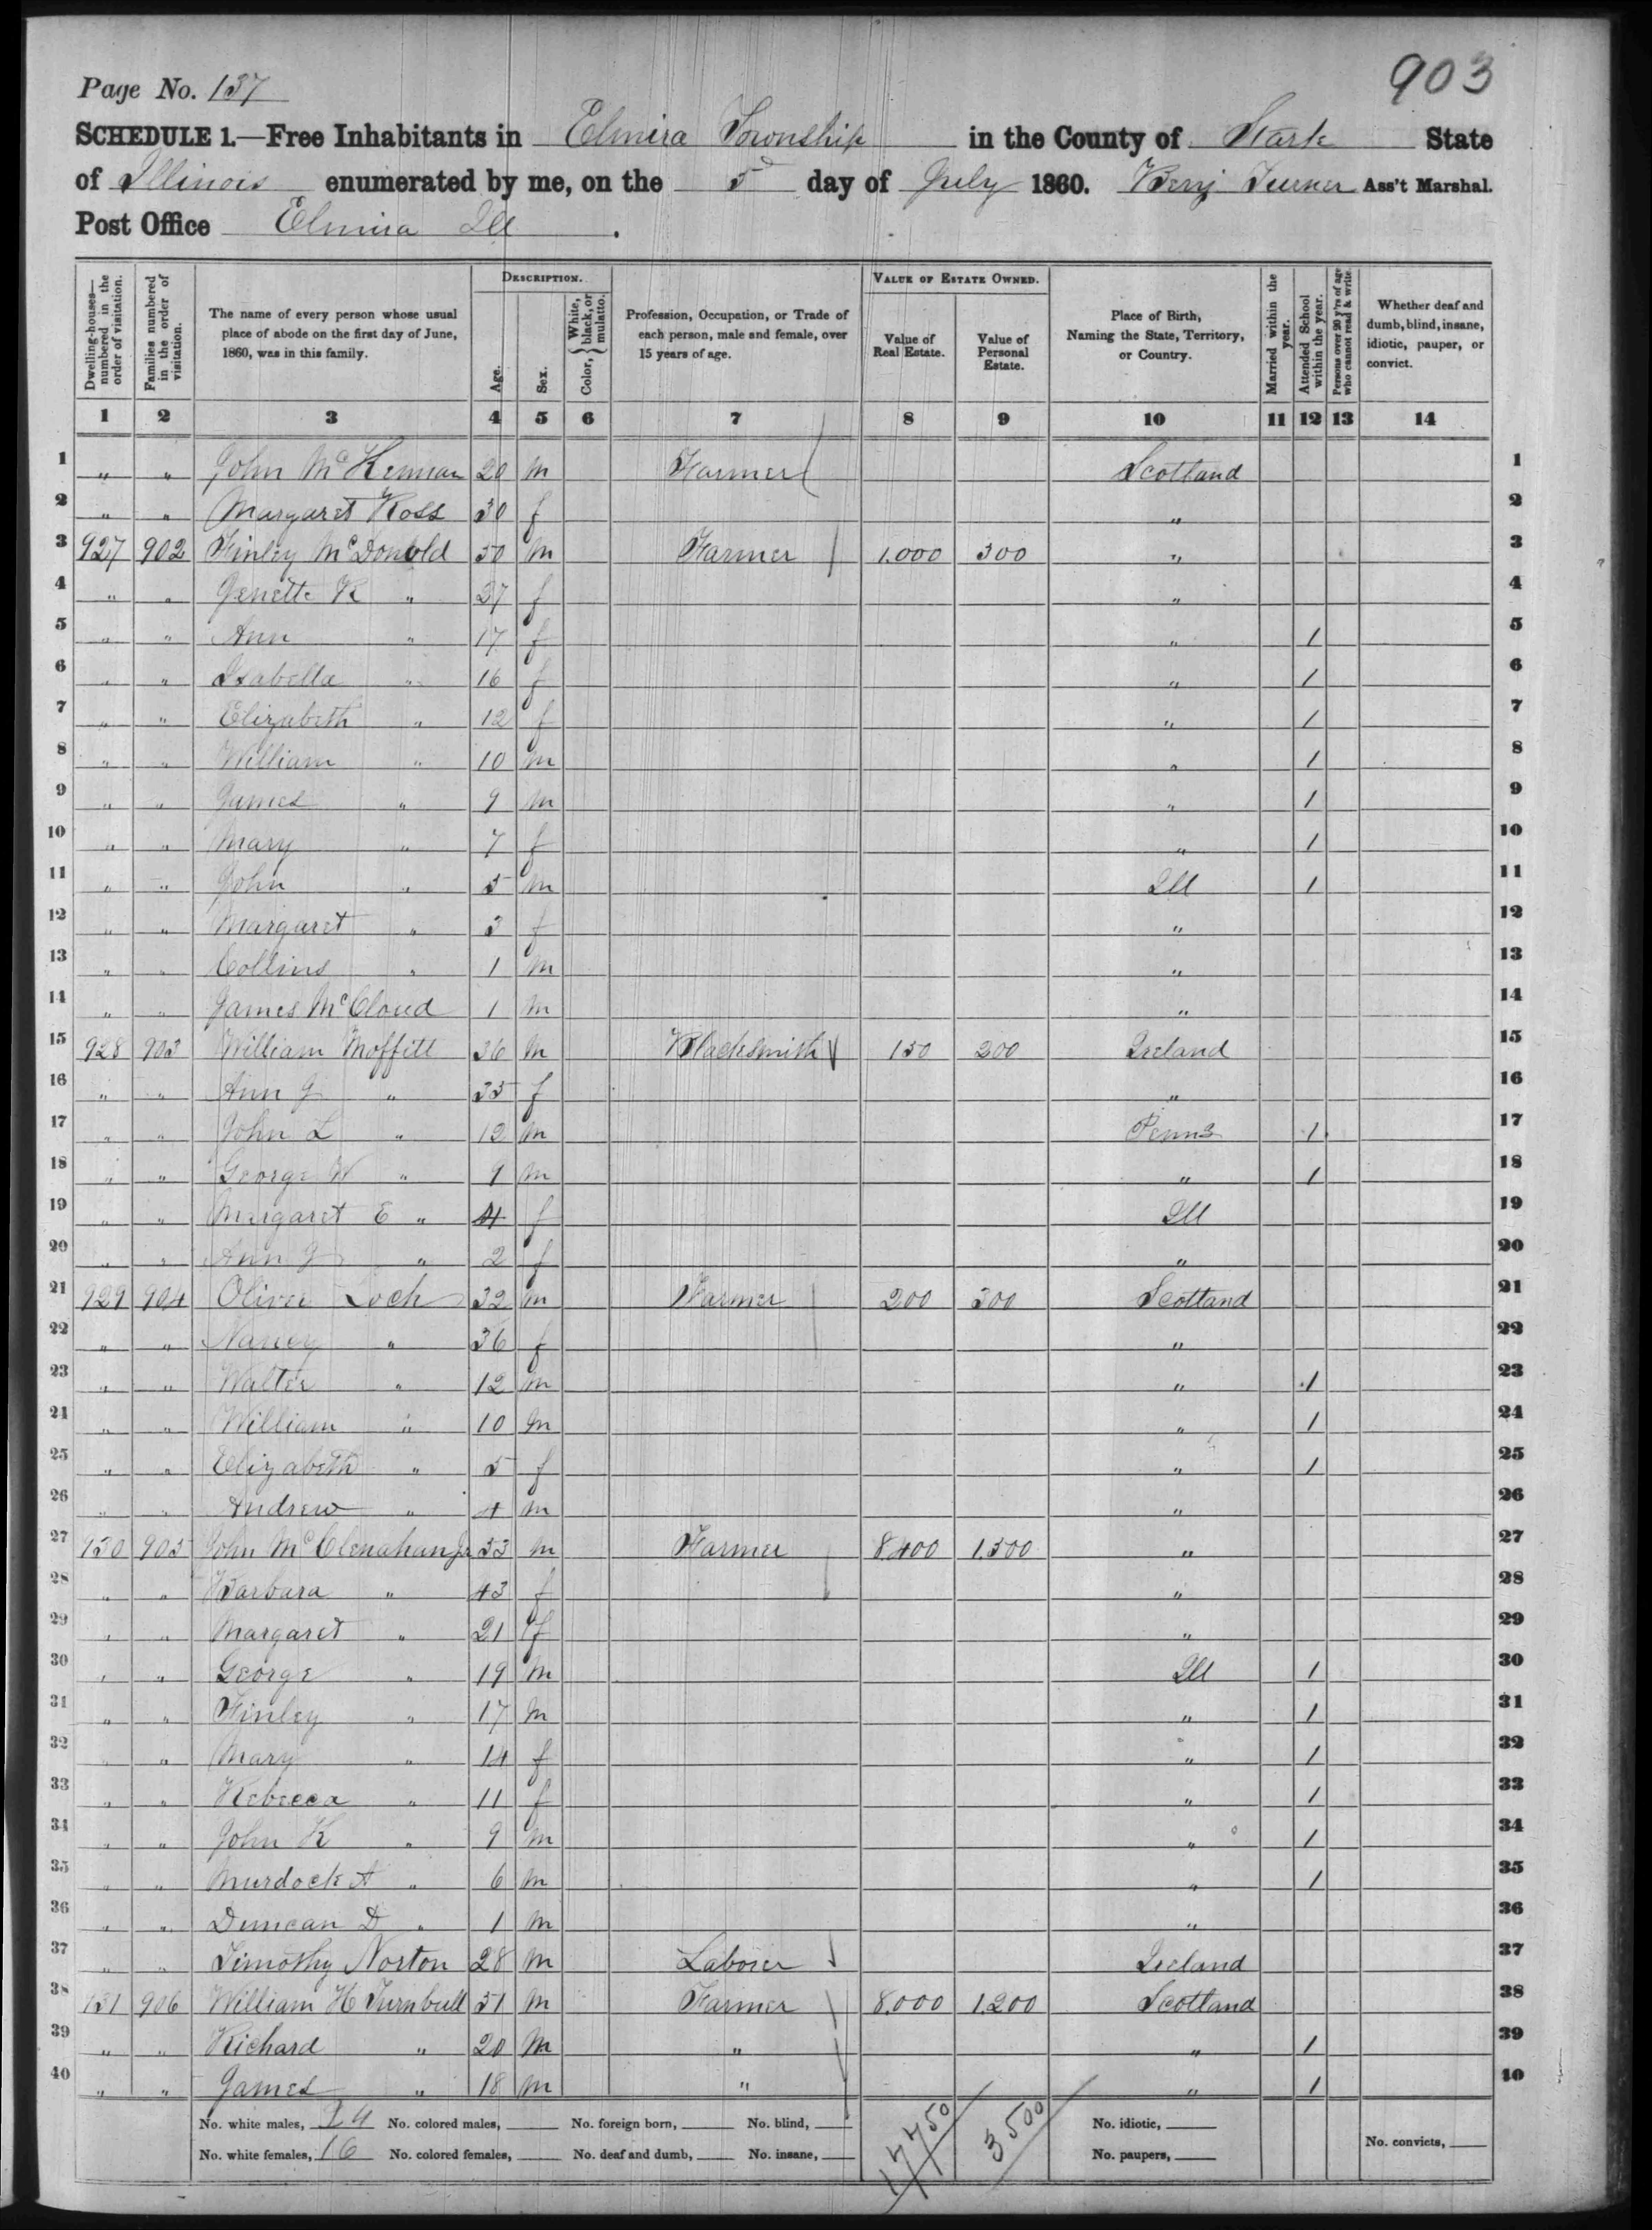 903
Page No. 137
SCHEDULE 1.—Free Inhabitants in Elmira Township in the County of Stark State
of Illinois enumerated by me, on the 5 day of July 1860. Benj Turner Ass't Marshal.
Post Office Elmira Ill.
Dwelling-houses—numbered in the order of visitation.
Families numbered in the order of visitation.
The name of every person whose usual place of abode on the first day of June, 1860, was in this family.
DESCRIPTION.
Age.
Sex.
Color, { White, black, or mulatto.
Profession, Occupation, or Trade of each person, male and female, over 15 years of age.
VALUE OF ESTATE OWNED.
Value of Real Estate.
Value of Personal Estate.
Place of Birth, Naming the State, Territory, or Country.
Married within the year.
Attended School within the year.
Persons over 20 y'rs of age who cannot read & write.
Whether deaf and dumb, blind, insane, idiotic, pauper, or convict.
1 2 3 4 5 6 7 8 9 10 11 12 13 14
1 " " John McKennan 20 m Farmer Scotland 1
2 " " Margaret Ross 30 f " 2
3 927 902 Finley McDonold 50 m Farmer 1.000 300 " 3
4 " " Genette K " 37 f " 4
5 " " Ann " 17 f " 1 5
6 " " Isabella " 16 f " 1 6
7 " " Elizabeth " 12 f " 1 7
8 " " William " 10 m " 1 8
9 " " James " 9 m " 1 9
10 " " Mary " 7 f " 1 10
11 " " John " 5 m Ill 1 11
12 " " Margaret " 3 f " 12
13 " " Collins " 1 m " 13
14 " " James McCloud 1 m " 14
15 928 903 William Moffitt 36 m Blacksmith 150 200 Ireland 15
16 " " Ann J " 35 f " 16
17 " " John L " 12 m Penna 1 17
18 " " George W " 9 m " 1 18
19 " " Margaret E " 4 f Ill 19
20 " " Ann J " 2 f " 20
21 929 904 Oliver Loch 32 m Farmer 200 300 Scotland 21
22 " " Nancy " 36 f " 22
23 " " Walter " 12 m " 1 23
24 " " William " 10 m " 1 24
25 " " Elizabeth " 5 f " 1 25
26 " " Andrew " 4 m " 26
27 930 905 John McClenahan Jr 53 m Farmer 8.400 1.500 " 27
28 " " Barbara " 43 f " 28
29 " " Margaret " 21 f " 29
30 " " George " 19 m Ill 1 30
31 " " Finley " 17 m " 1 31
32 " " Mary " 14 f " 1 32
33 " " Rebecca " 11 f " 1 33
34 " " John K " 9 m " 1 34
35 " " Murdock A " 6 m " 1 35
36 " " Duncan D " 1 m " 36
37 " " Timothy Norton 28 m Laborer Ireland 37
38 931 906 William H Turnbull 51 m Farmer 8.000 1.200 Scotland 38
39 " " Richard " 20 m " " 1 39
40 " " James " 18 m " " 1 40
No. white males, 24 No. colored males, No. foreign born, No. blind, 17750 3500 No. idiotic,
No. white females, 16 No. colored females, No. deaf and dumb, No. insane, No. paupers, No. convicts,